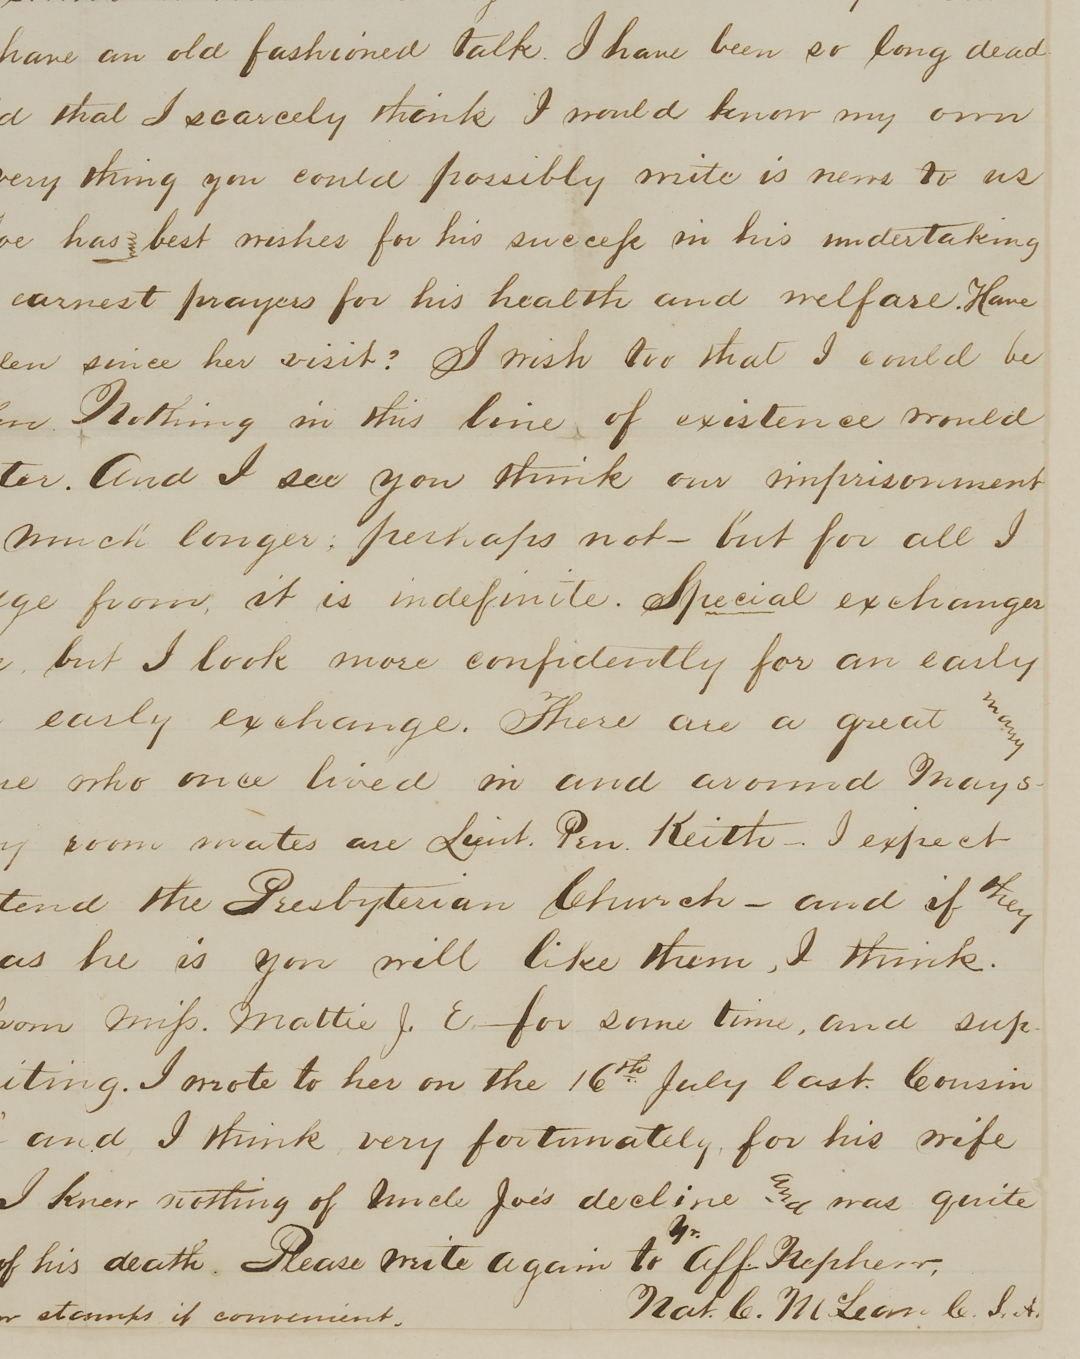 have an old fashioned talk. I have been so long dead
d that I scarcely think I would know my own
very thing you could possibly write is news to us
oe has my best wishes for his success in his undertaking
earnest prayers for his health and welfare. Have
len since her visit? I wish too that I could be
Nothing in this line of existence would
ter. And I see you think our imprisonment
much longer; perhaps not – but for all I
ge from, it is indefinite. Special exchanges
, but I look more confidently for an early
early exchange. There are a great many
re who once lived in and around Mays-
y room mates are Lieut. Pen. Keith –. I expect
tend the Presbyterian Church – and if they
as he is you will like them, I think.
rom Miss. Mattie J. E – for some time, and sup-
iting. I wrote to her on the 16th July last. Cousin
and I think very fortunately, for his wife
I knew nothing of Uncle Joe's decline and was quite
of his death. Please write again to Yr. Aff. Nephew,
Nat. C. McLean C. S. A.
r stamps if convenient.